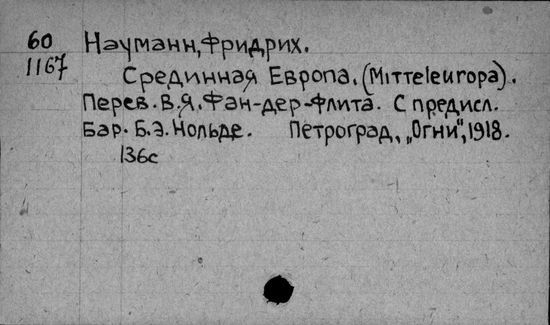 60 Науманн, Фридрих.
1167
Срединная Европа. (Mitteleuropa).
Перев. В.Я. Фан-дер-Флита. С предисл.
Бар. Б.Э. Нольде. Петроград, „Огни", 1918.
136с